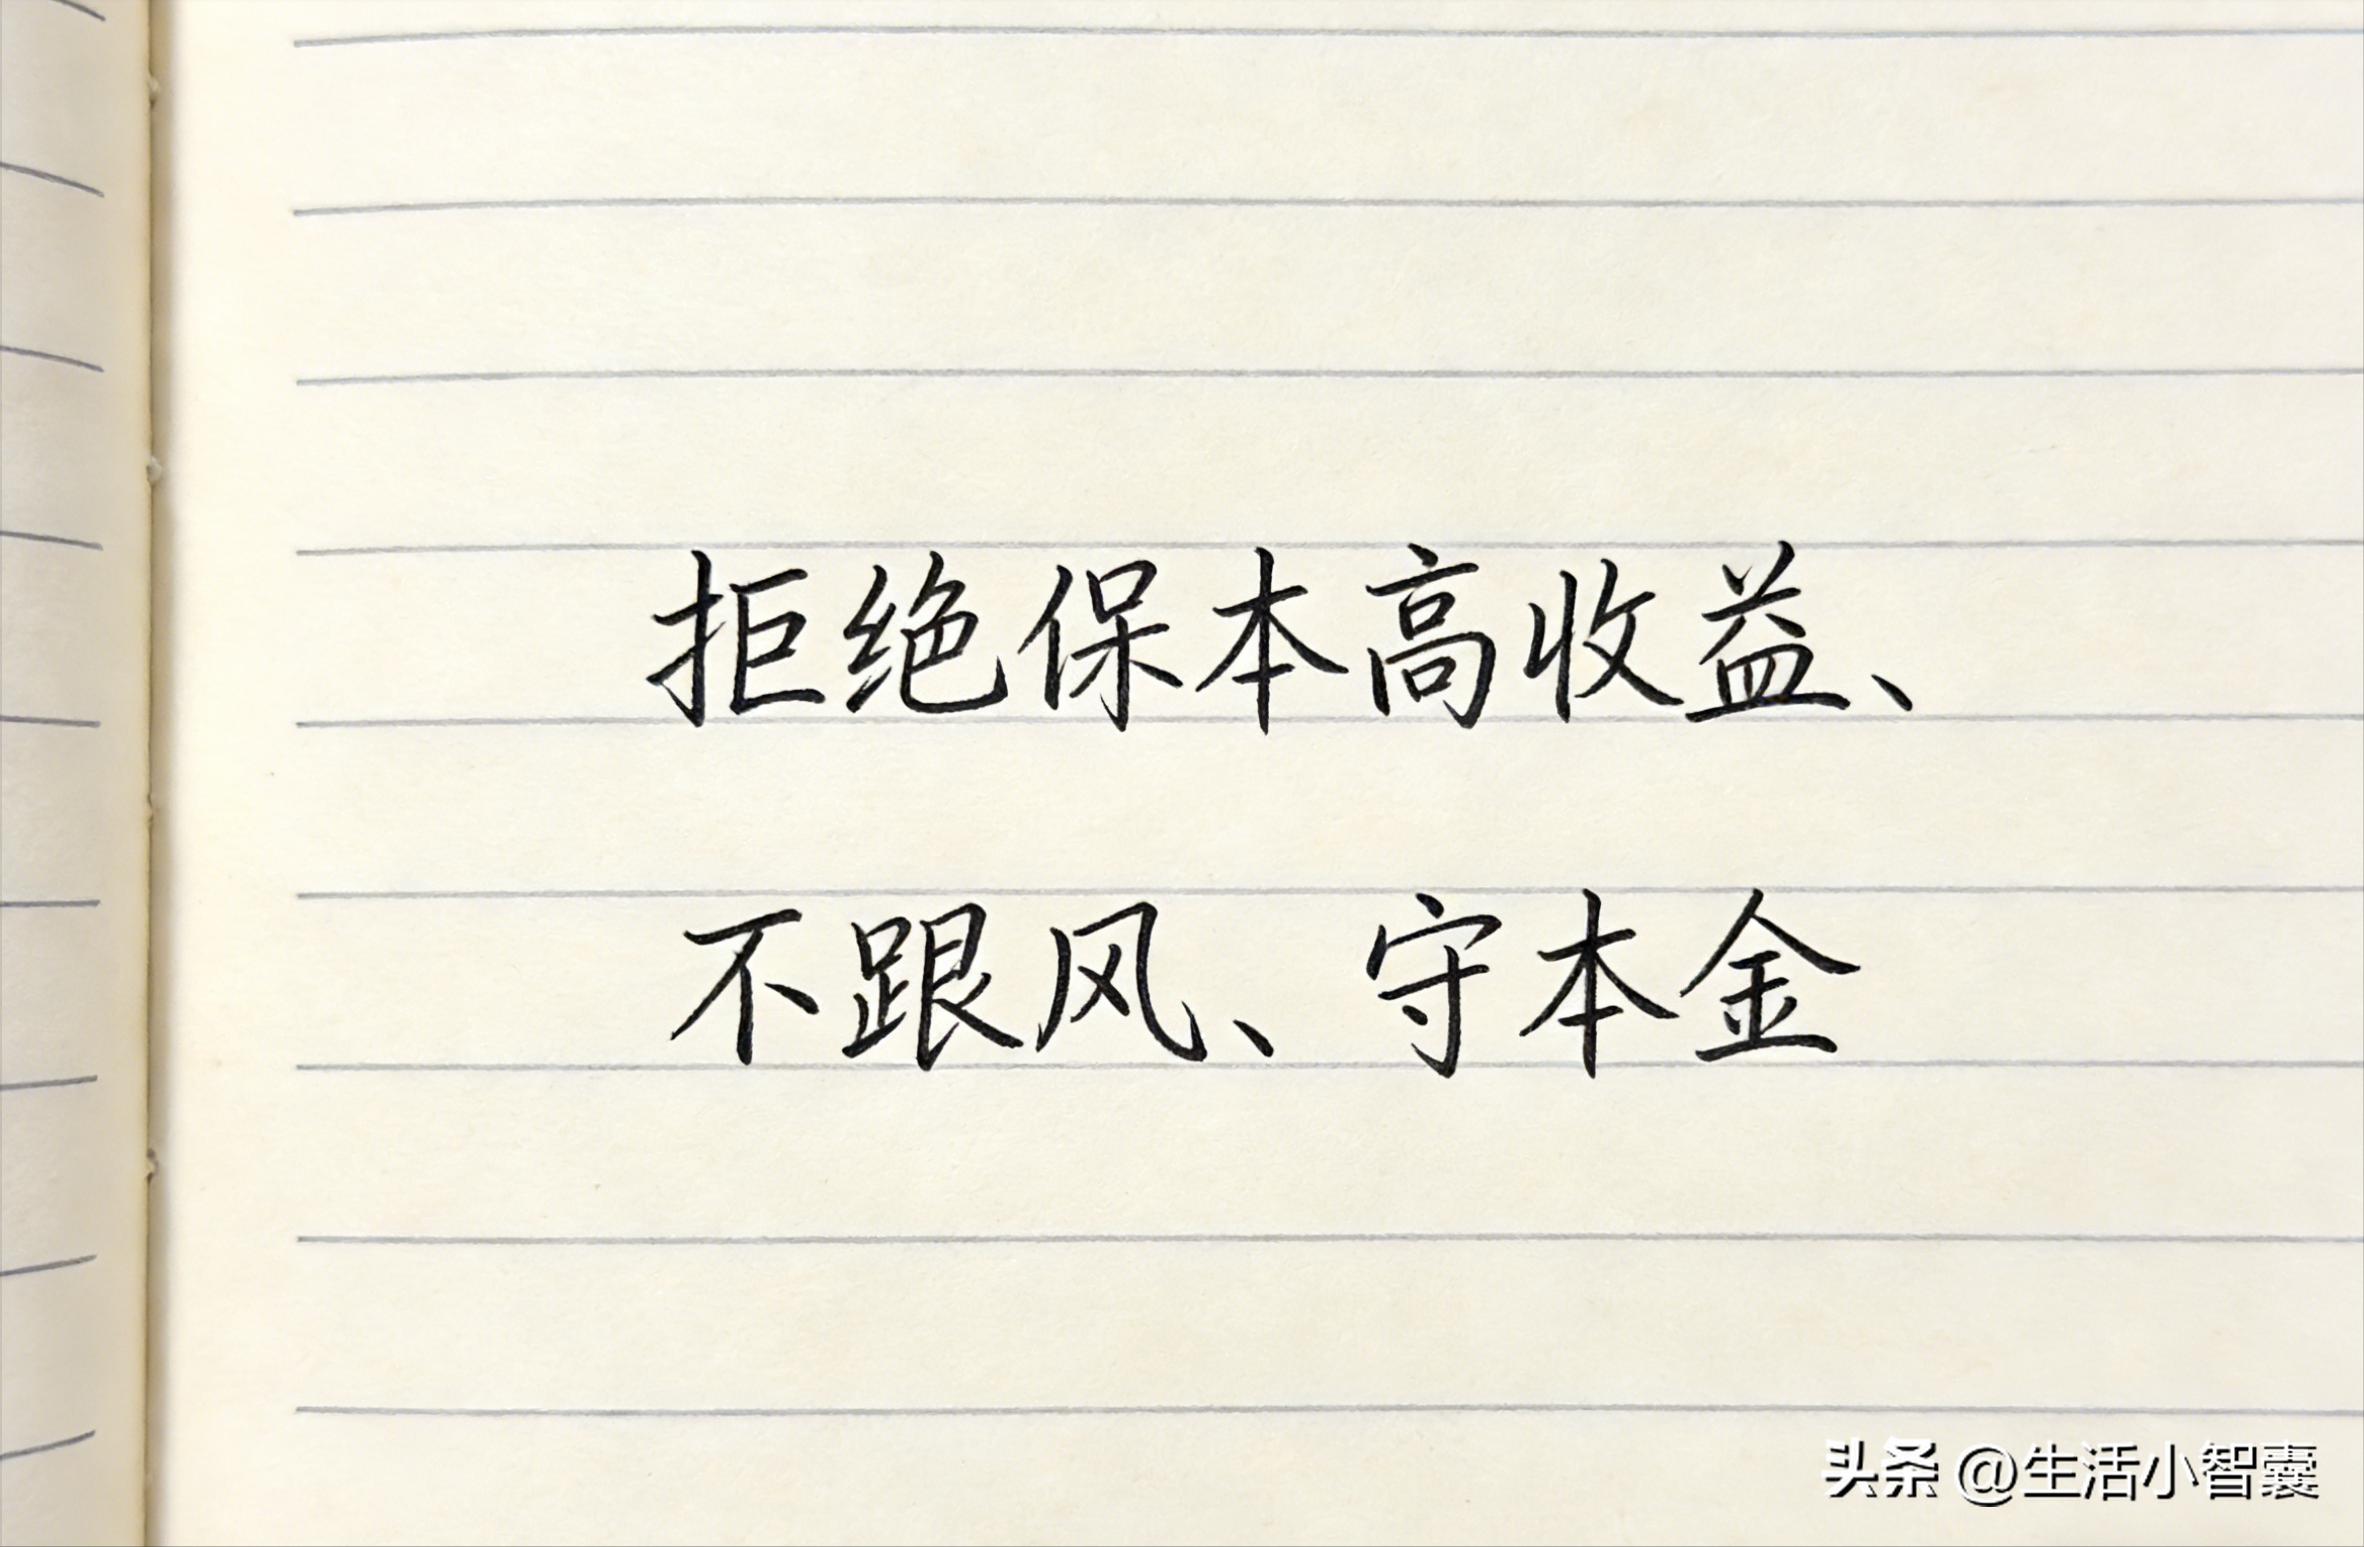 拒绝保本高收益、
不跟风、守本金
头条 @生活小智囊